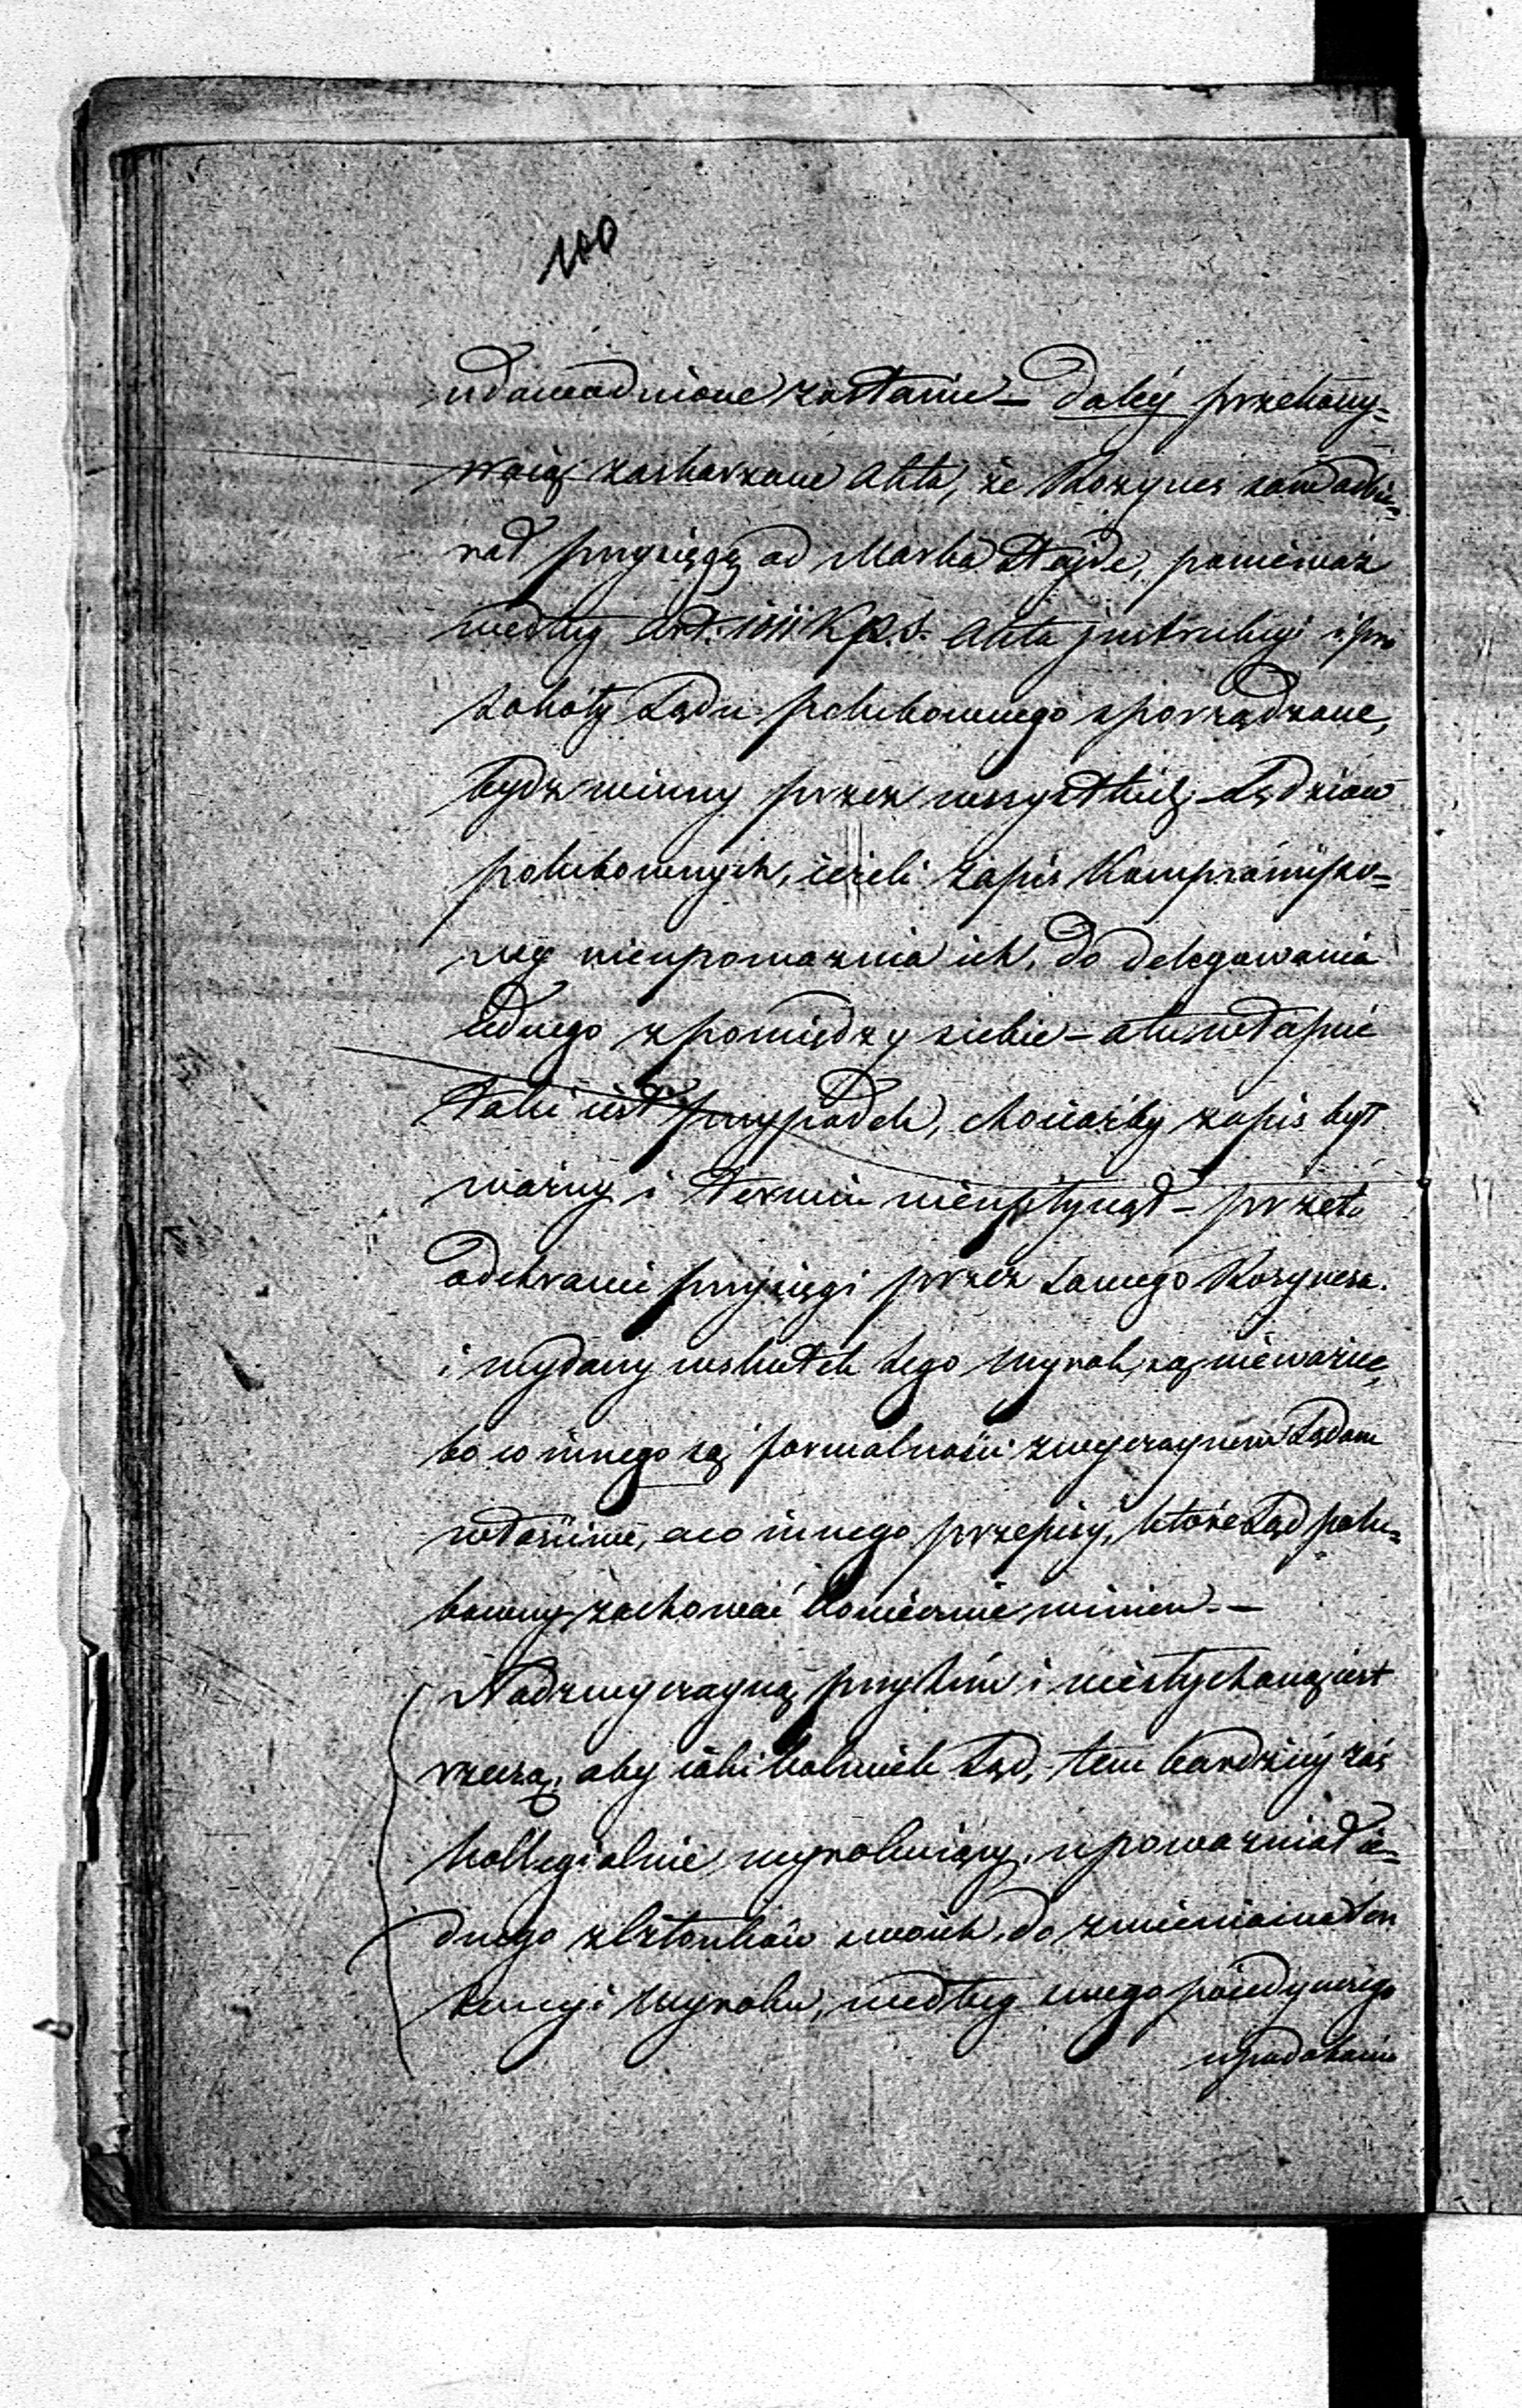 100
udowodnione zostanie – daléy przekony=
waią zaskarzone Akta, że Kozynes sam odbie=
rał przysięgę od Marka Hayde, ponieważ
według Art. 1011 K.P.S. Akta instrukcyi i pro
tokóły Sądu polubownego sporządzone,
bydz winny przez wszystkich Sędziów
polubownych, ieżeli zapis Kompromisso=
wy nieupoważnia ich, do delegowania
iednego z pomiędzy siebie – atu właśnie
taki iest przypadek, chociażby zapis był
ważny i termin nieupłynął – przeto
odebranie przysięgi przez samego Kozynesa
i wydany wskutek tego Wyrok, są nieważne,
bo co innego są formalności zwyczaynem Sądom
właściwe, a co innego przepisy, które Sąd polu=
bowny zachować koniecznie winien. –
Nadzwyczayną przytém i niesłychaną iest
rzeczą, aby iaki kolwiek Sąd, tem bardziéy zaś
kollegialnie wyrokuiący, upoważniał ie=
dnego z Członków swoich, do zmieniania ten
tencyi Wyroku, według swego poiedynczego
upodobania